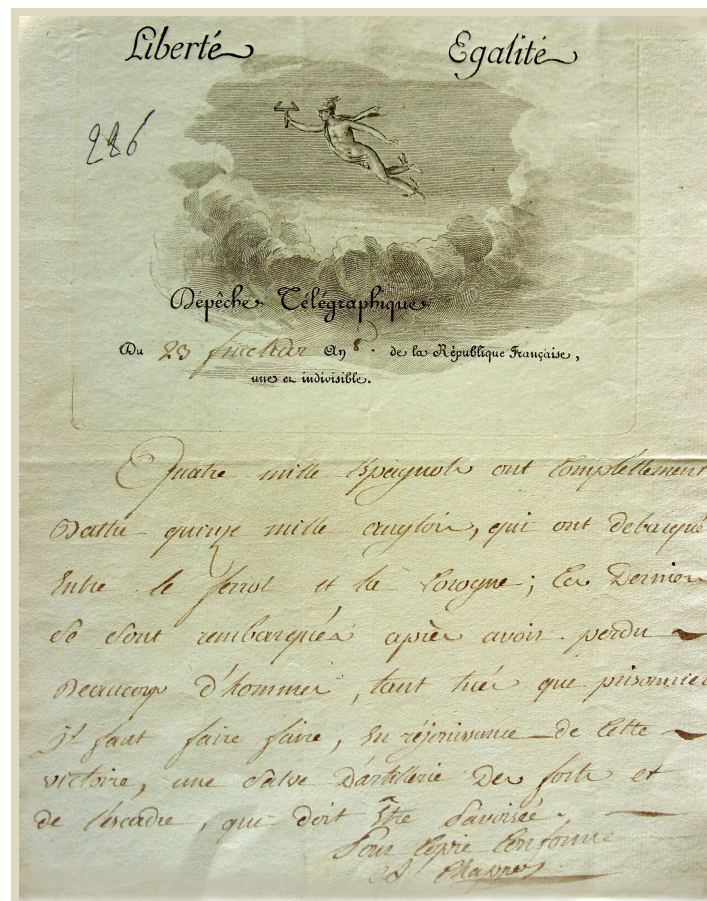 Liberté Egalité
226
Dépêche Télégraphique
Du 23 fructidor An 8. de la République Française,
une et indivisible.
Quatre mille Espagnols ont complettement
Battu quinze mille anglois, qui ont debarqué
Entre le ferrol et la Corogne; Ces Derniers
Se Sont rembarqués après avoir perdu
Beaucoup d'hommes, tant tués que prisonniers
Il faut faire faire, En réjouissance de Cette
victoire, une Salve D'artillerie Des forts et
de l'escadre, qui doit Être Pavoisée.
Pour Copie Conforme
Chappe